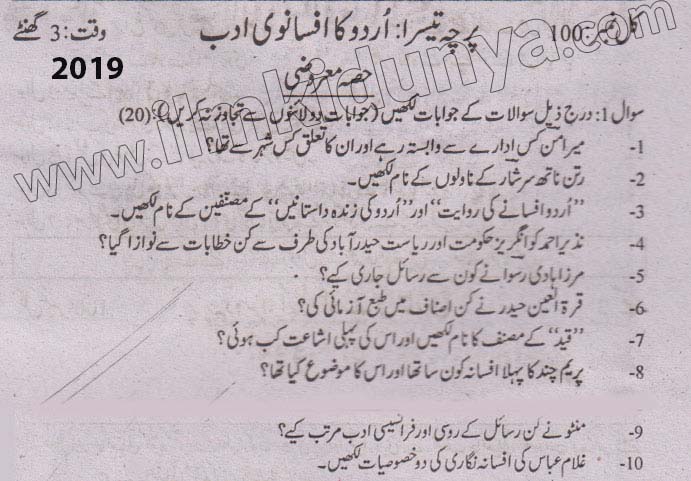 کل نمبر: 100 پرچہ تیسرا: اُردو کا افسانوی ادب وقت: 3 گھنٹے
2019
حصہ معروضی
www.ilmkidunya.com
سوال 1: درج ذیل سوالات کے جوابات لکھیں (جوابات دو لائنوں سے تجاوز نہ کریں)؟ (20)
1- میرامن کس ادارے سے وابستہ رہے اور ان کا تعلق کس شہر سے تھا؟
2- رتن ناتھ سرشار کے ناولوں کے نام لکھیں۔
3- "اُردو افسانے کی روایت" اور "اُردو کی زندہ داستانیں" کے مصنفین کے نام لکھیں۔
4- نذیر احمد کو انگریز حکومت اور ریاست حیدرآباد کی طرف سے کن خطابات سے نوازا گیا؟
5- مرزا ہادی رسوا نے کون سے رسائل جاری کیے؟
6- قرۃ العین حیدر نے کن اصناف میں طبع آزمائی کی؟
7- "قید" کے مصنف کا نام لکھیں اور اس کی پہلی اشاعت کب ہوئی؟
8- پریم چند کا پہلا افسانہ کون سا تھا اور اس کا موضوع کیا تھا؟
9- منٹو نے کن رسائل کے روسی اور فرانسیسی ادب مرتب کیے؟
10- غلام عباس کی افسانہ نگاری کی دو خصوصیات لکھیں۔